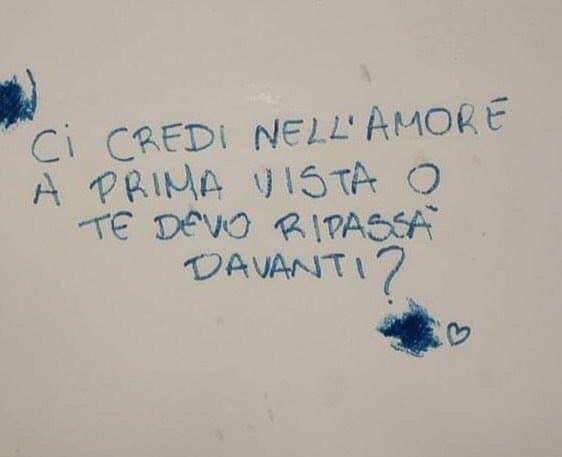 Ci CREDI NELL'AMORE
A PRIMA VISTA O
TE DEVO RIPASSÀ
DAVANTI?